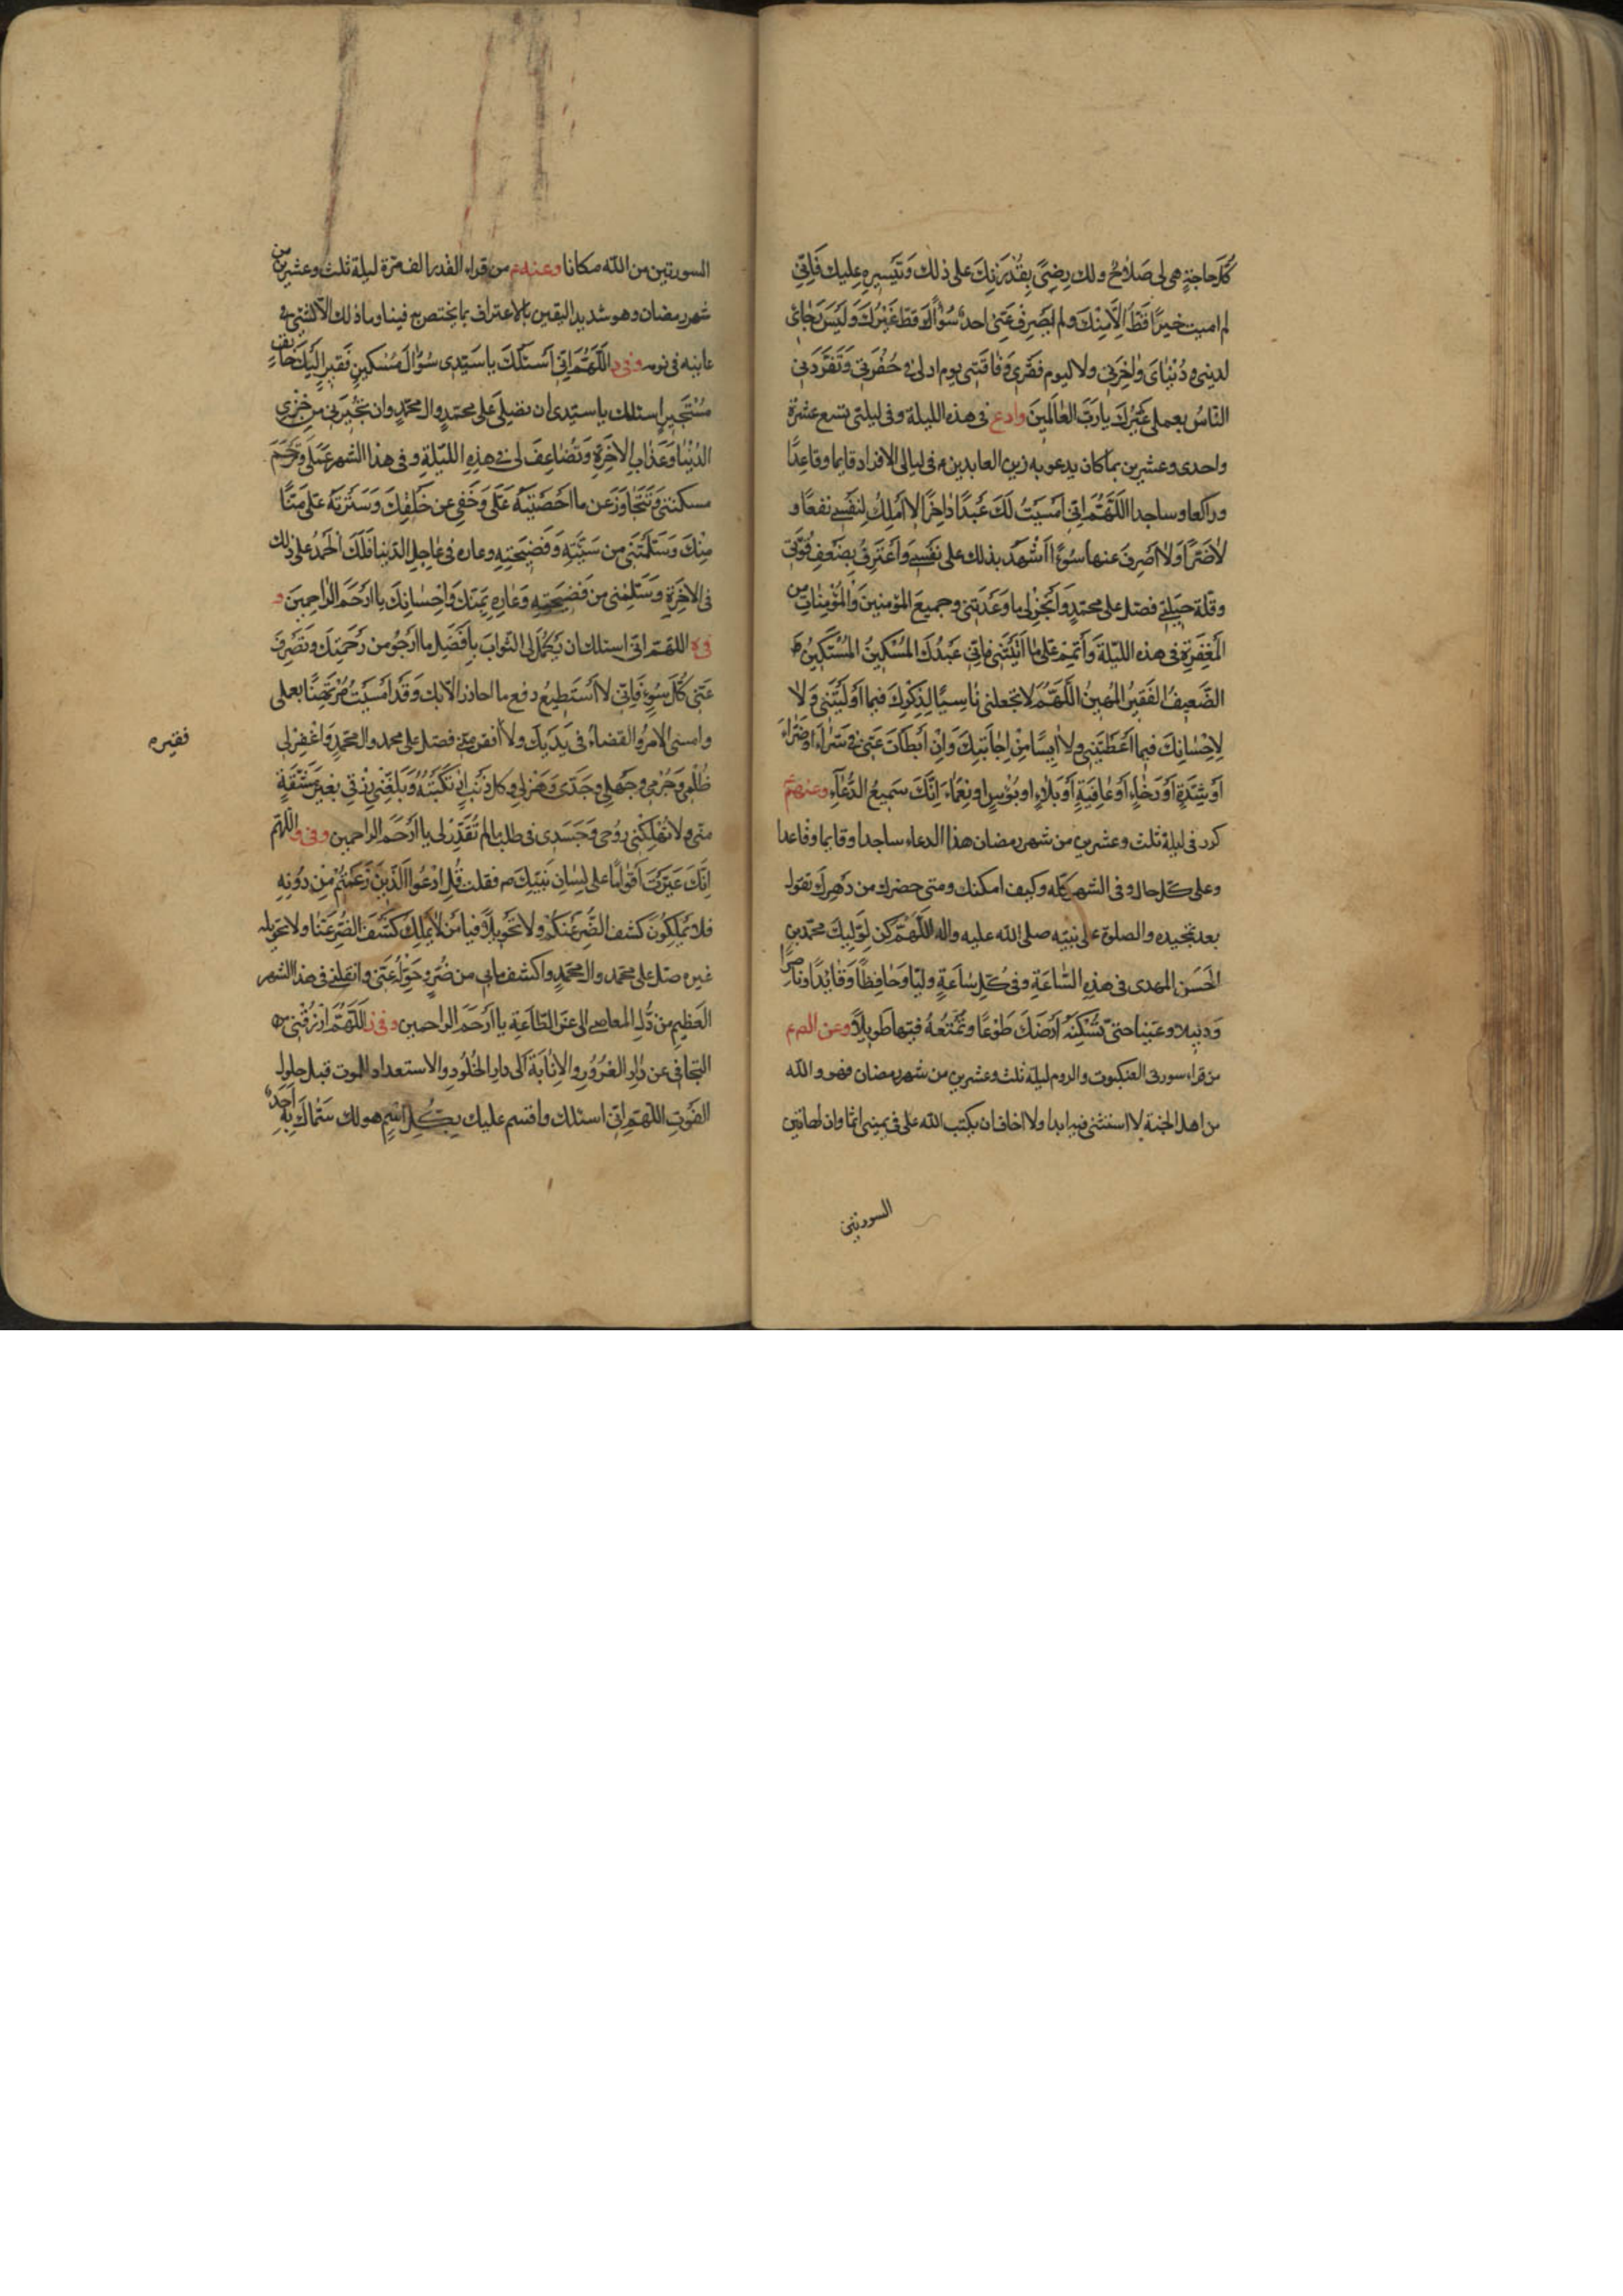 كُلّ حاجةٍ هى لى صَلاحٌ ولك رِضىً بِقُدْرَتِكَ على ذلك وَتَيْسِيرِهِ عليك فَاِنّى
لم اصب خيرًا قَطُّ اِلّا مِنْكَ ولم يَصْرِف عَنّى احدٌ سُوْءًا قَطّ غَيْرُكَ وَلَيْسَ رَجائى
لدينى و دُنْيٰاىَ وَاٰخِرَتى ولا ليوم فَقْرى وَ فٰاقَتى يوم ادلى فى حُفْرَتى وَتَفَرَّدَنى
النّاسُ بعملى غَيْرُكَ يارَبَّ العٰالَمينَ وادع فى هذه الليلة وفى ليلتى تسع عشرة
واحدى وعشرين بما كان يدعو به زين العابدين ع فى ليالى الافراد قايما وقاعِدًا
وراكعا وساجدا اَللّهُمَّ اِنّى اَمسَيْتُ لَكَ عَبْدًا دٰاخِرًا لا اَمْلِكُ لِنَفْسى نفعًا و
لاٰ ضَرًّا وَلاٰ اَصرِفُ عنها سُوءًا اَشْهَدُ بذلك على نَفْسى وَاَعْتَرِفُ بِضَعْفِ قُوَّتى
وقلّة حيلَتى فصلّ على محمّدٍ وَاَنْجِزْ لى ما وَعَدْتَنى وجميعَ المؤمنينَ وَالْمُؤْمِنٰاتِ من
المَغْفِرَةِ فى هذه الليْلَة وَاَتْمِمْ عَلَىَّ مٰا اٰتَيْتَنى فاِنّى عَبْدُكَ المُسْكينُ المُسْتَكينُ
الضَّعيفُ الفَقيرُ المُهينُ اَللَّهُمَّ لا تجعلنى نٰاسِيًا لِذِكْرِكَ فيما اَوْلَيْتَنى وَلا
لِاِحْسٰانِكَ فيما اَعْطَيْتَنى ولاٰ اٰيِسًا مِنْ اِجٰابَتِكَ وَاِنْ اَبْطَاَتْ عَنّى فى سَرّٰاءَ اَوْ ضَرّٰاءَ
اَوْ شِدَّةٍ اَوْ رَخٰاءٍ اَوْ عٰافِيَةٍ اَوْ بَلاٰءٍ او بُؤْسٍ او نِعْمٰاءَ اِنَّكَ سَميعُ الدُّعٰاءِ وعنهم ع
كرر فى ليلة ثلث وعشرين من شهر رمضان هذا الدعاء ساجدا وقايما وقاعدا
وعلى كلّ حال وفى الشهر كله وكيف امكنك ومتى حضرك من دَهْرِكَ تقول
بعد تمجيده والصلوة على نبيّه صلى الله عليه واله اللّهُمَّ كُن لِوَلِيكَ محمّد بن
الحَسَن المهدى فى هذِهِ السّٰاعَةِ وفى كُلّ سٰاعَةٍ وليّا وَحٰافِظًا وَقٰائِدًا وناصِرًا
وَدليلا وعَينا حتىّ تُسْكِنَهُ اَرْضَكَ طَوْعًا وتُمَتِّعَهُ فيها طَويلاً وعن الص ع
من قراء سورتى العنكبوت والروم ليلة ثلث وعشرين من شهر رمضان فهو والله
من اهل الجنة لا استثنى فيه ابدا ولا اخاف ان يكتب الله على فى يمينى اثما وان لهاتين
السورتين
السورتين من الله مكانا وعنه ع من قراء القدر الف مرّة ليلة ثلث وعشرين من
شهر رمضان وهو شديد اليقين بالاعتراف بما يختص به فينا وما ذلك الّا لشئ
عاينه فى نومه وفى د اَللّهُمَّ اِنّى اَسْئَلُكَ يا سَيّدى سُؤٰالَ مُسْكينٍ فَقيرٍ اِلَيْكَ خائفٍ
مُسْتَجيرٍ اسئلك يا سيّدى ان تصلّى على محمّدٍ وال محمّدٍ وان تجُيرَنى من خِزْىِ
الدُنْيٰا وَعَذٰابِ الاٰخِرَةِ وَتُضٰاعِفَ لى فى هذِهِ الليْلَةِ وفى هذا الشهر عَمَلى وَتَرْحَمَ
مسكنتى وَتَتَجٰاوَزَ عن ما اَحْصَيْتَهُ عَلَىَّ وَخَفِىَ عن خَلْقِكَ وَسَتَرْتَهُ عَلىَّ مَنًّا
مِنْكَ وَسَلَّمْتَنى من شَيْنِهِ وَفَضيحَتِهِ وعاره فى عٰاجِلِ الدّنيا فَلَكَ الحَمْدُ على ذلك
فى الاٰخِرَةِ وَسَلّمْنى من فَضيحَتِهِ وَعٰارِهِ بِمَنّكَ وَاِحْسٰانِكَ يا اَرْحَمَ الرّٰاحِمينَ و
فى ه اللّهُمَّ انّى اسئلك ان تُكَمّلَ لى الثوابَ بِاَفْضَلِ ما اَرجُو من رَحْمَتِكَ وتَصْرِفَ
عَنّى كُلَّ سوءٍ فَاِنّى لاٰ اَسْتَطيعُ دفع ما احاذر الّا بك وَقَدْ اَمْسَيْتُ مُرْتَهِنًا بعملى
وامسى الامرُ والقضاءُ فى يَدَيكَ ولاٰ فقير منّى فصلّ على محمد وال محمّدٍ وَاغْفِرْ لى
فقيره
ظُلْمى وَجُرْمى وجَهْلى وجَدّى وَهَزْلى وكل ذَنْبٍ ارْتَكَبْتُهُ وَبَلّغْنى رِزْقى بغير مَشَقّةٍ
منّى ولاٰ تُهْلِكْنى رُوحى وَجَسَدى فى طلب ما لم تُقَدِّرْ لى يا اَرْحَمَ الراحمين وفى و اللّهم
اِنَّكَ عَيَّرْتَ اَقْوٰامًا على لِسٰانِ نَبِيّكَ ص فقلت قُلِ ادْعُوا الّذينَ زَعَمْتُمْ مِنْ دُونِهِ
فلا يَمْلِكُونَ كشف الضُّرِّ عَنْكُمْ ولاٰ تَحْويلاً فيا مَنْ لاٰ يَمْلِكُ كَشْفَ الضُّرِّ عَنّٰا ولا تحويله
غيره صلّ على محمّد وال محمّدٍ واكشف ما بى من ضُرٍّ وحَوّلْهُ عَنّى وانقلنى فى هذا الشهر
العَظيمِ من ذُلِّ المعاصى الى عزّ الطّاعَةِ يا اَرْحَمَ الراحمين وفى ز اَللّهُمَّ ارْزُقْنى
التجافى عن دٰارِ الغُرُورِ والاِنٰابَةَ الى دارِ الخُلُودِ والاستعداد للموت قبل حلول
الفَوْتِ اللّهم اِنّى اسئلك واقسم عليك بِكُلِّ اسْمٍ هو لك سَمّاكَ بِهِ اَحَدٌ